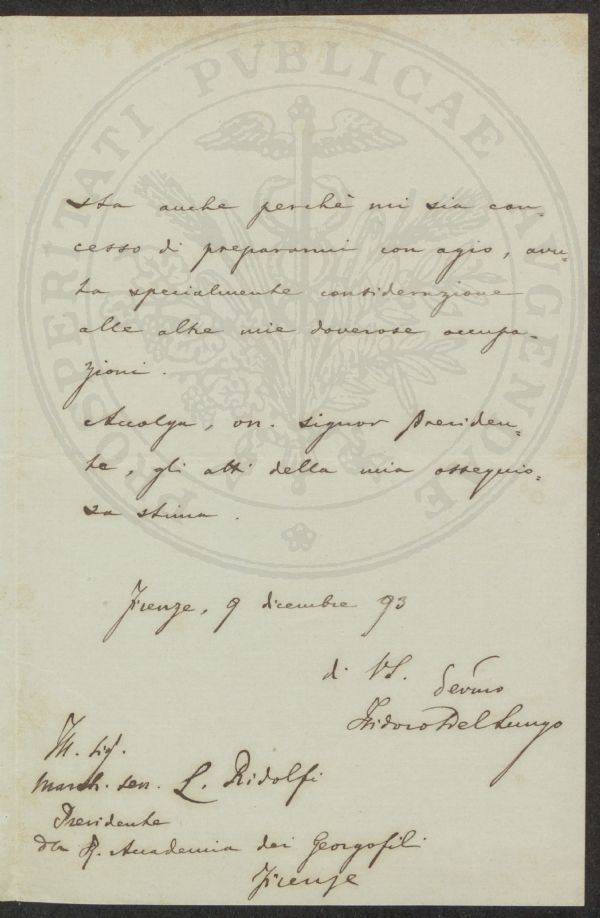 PROSPERITATI PVBLICAE AVGENDAE
sta anche perchè mi sia con-
cesso di prepararmi con agio, avu-
ta specialmente considerazione
alle altre mie doverose occupa-
zioni.
Accolga, on. signor Presiden-
te, gli atti della mia ossequio-
sa stima.
Firenze, 9 dicembre 93
di VS. devmo
Isidoro Del Lungo
March. sen. L. Ridolfi
Presidente
R. Accademia dei Georgofili
Firenze